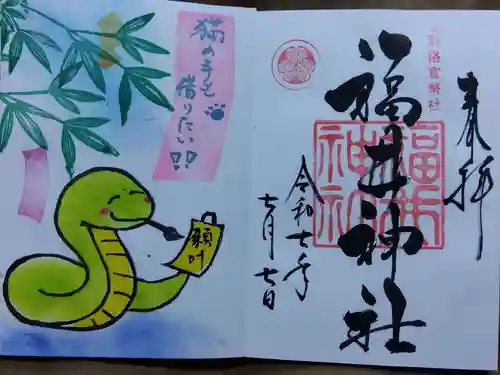 奉拝
別格官幣社
福井神社
福井
神社
令和七年
七月七日
猫の手も
借りたい!!
願叶